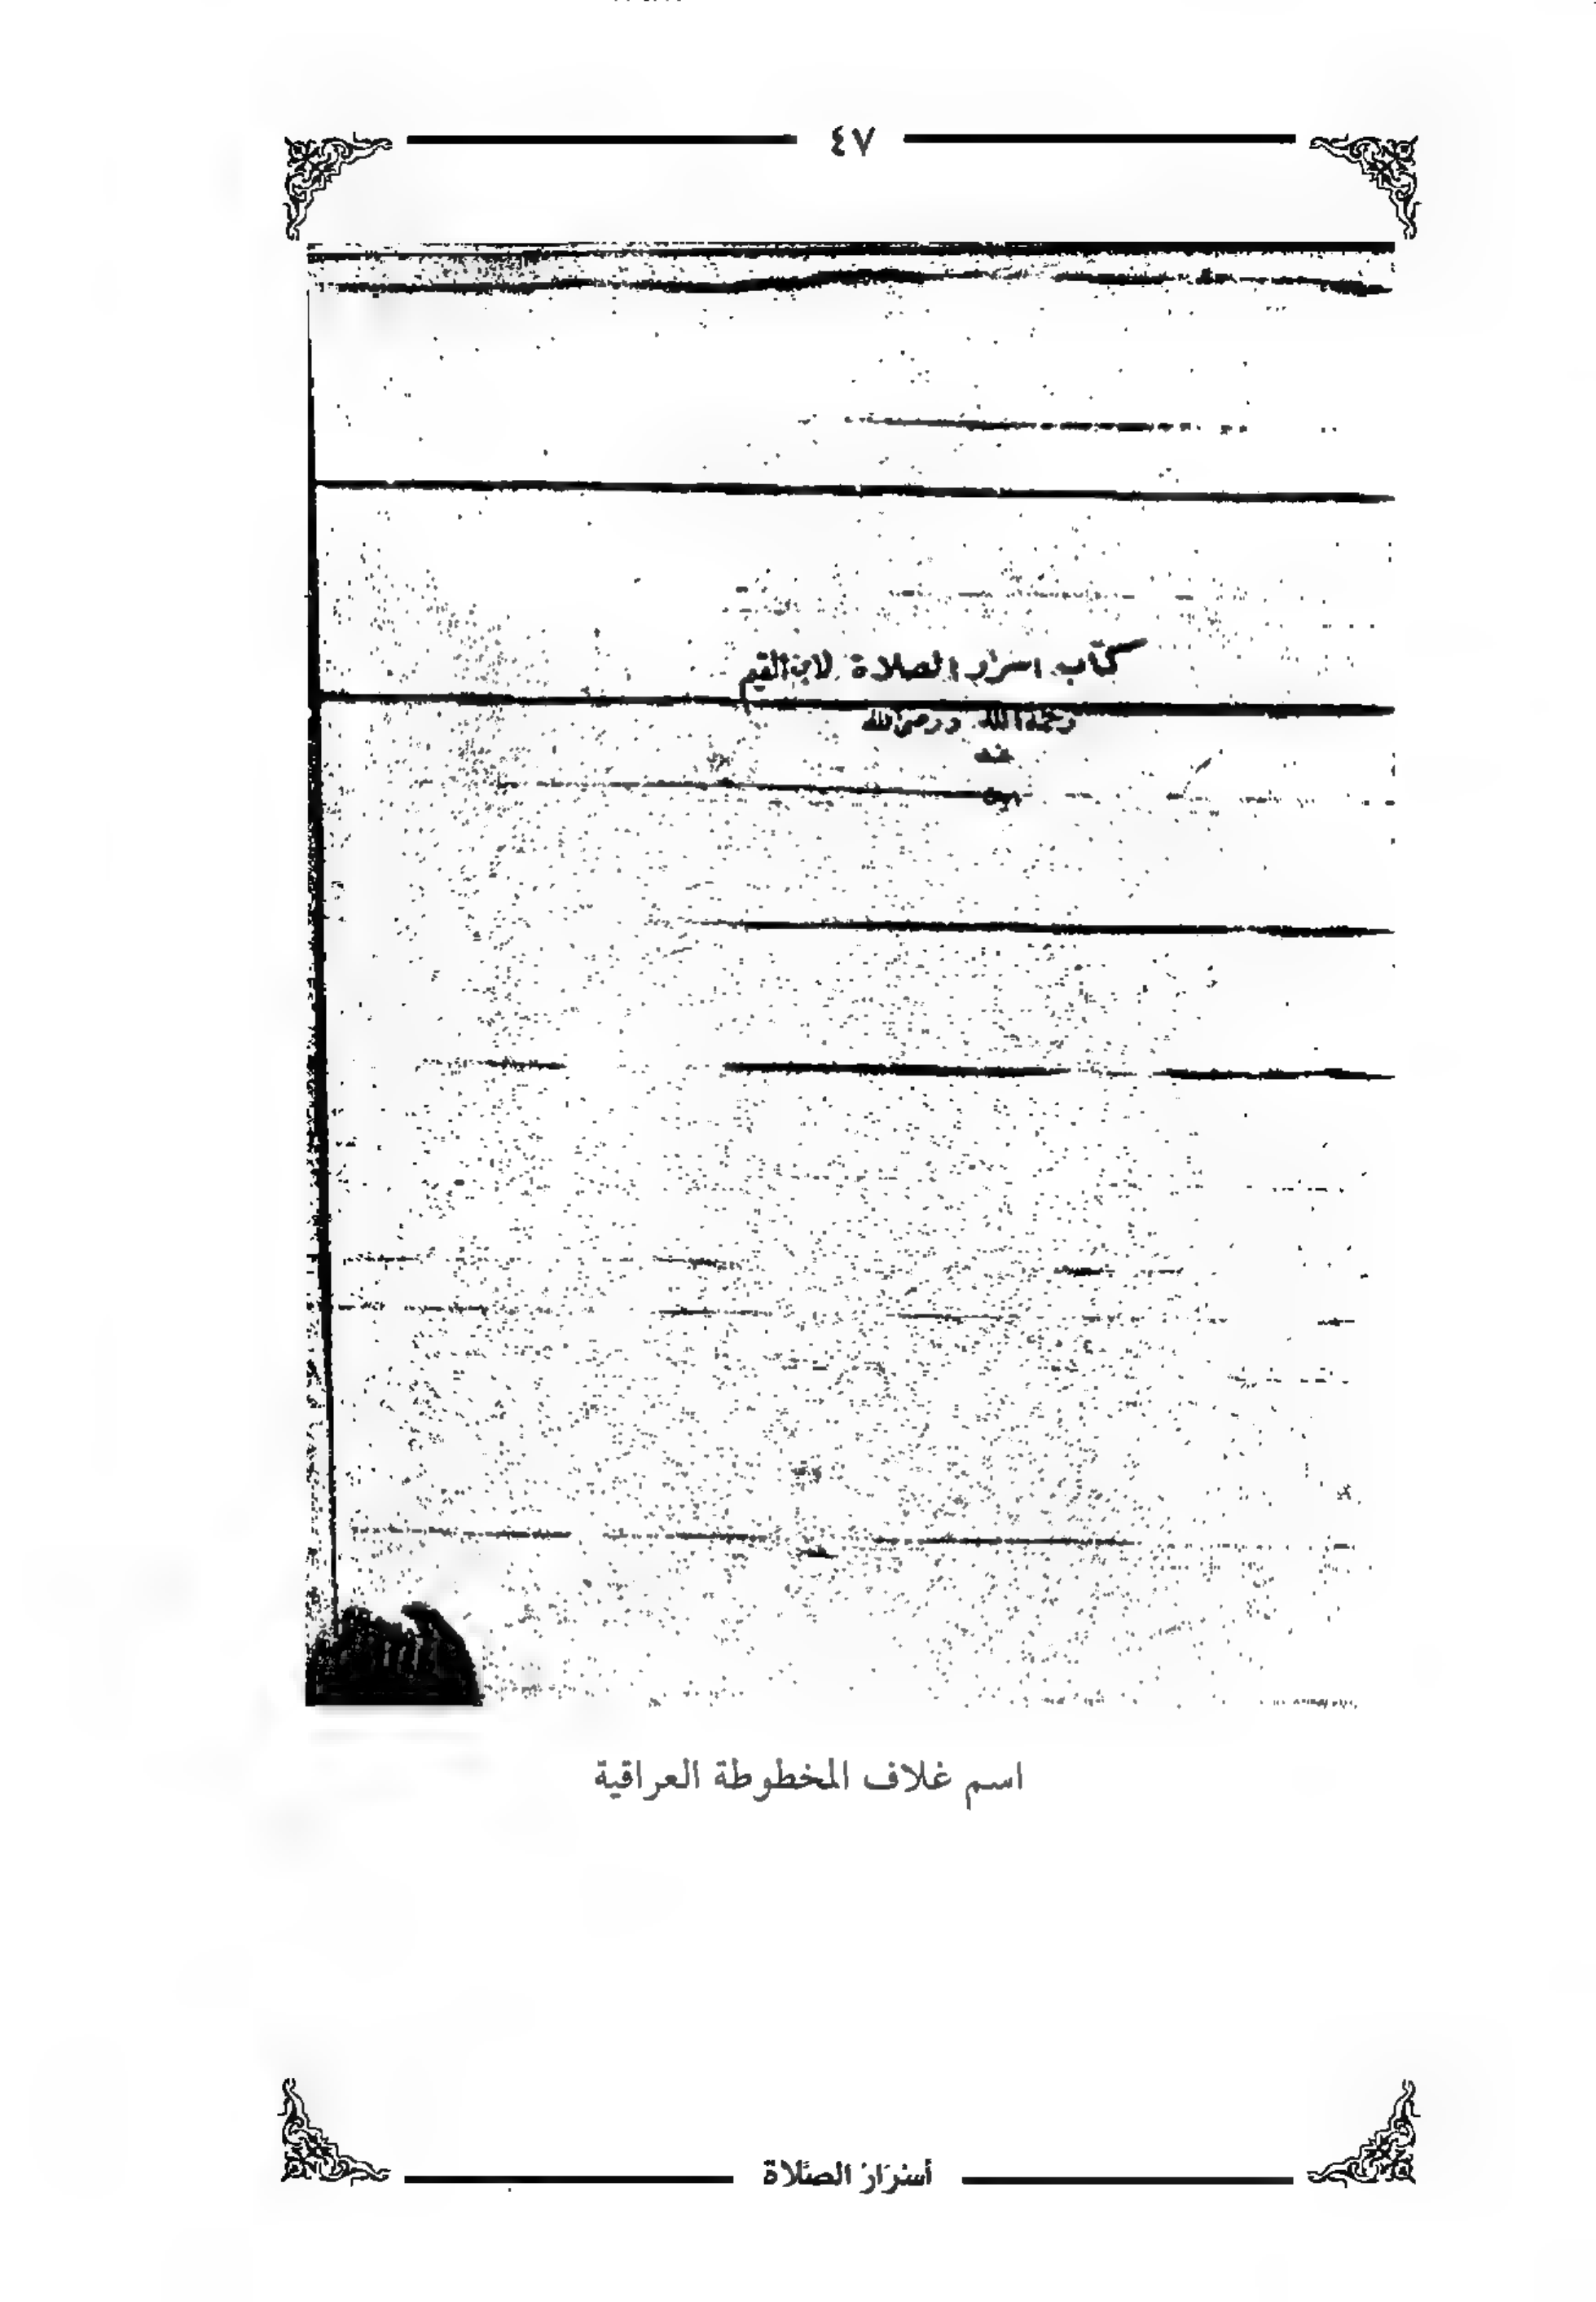 ٤٧
كتاب اسرار الصلاة لابن القيم
رحمه الله ورضي الله
عنه
اسم غلاف المخطوطة العراقية
أسرار الصلاة